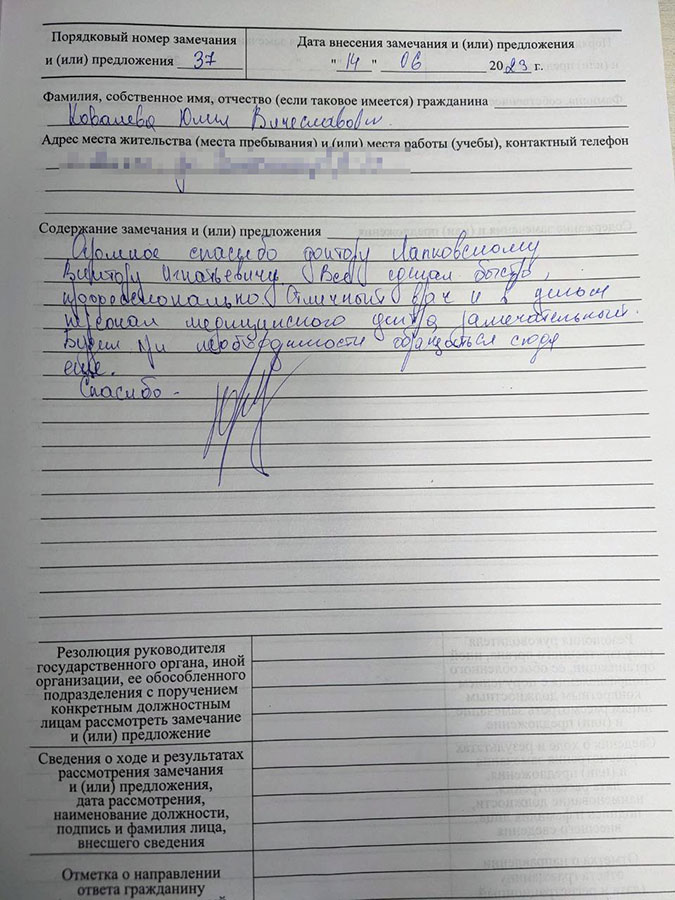 Порядковый номер замечания
и (или) предложения 37
Дата внесения замечания и (или) предложения
"14" 06 2023 г.
Фамилия, собственное имя, отчество (если таковое имеется) гражданина
Ковалева Юлия Вячеславовн.
Адрес места жительства (места пребывания) и (или) места работы (учебы), контактный телефон
Содержание замечания и (или) предложения
Огромное спасибо доктору Лапковскому
Виктору Игнатьевичу. Все сделал быстро,
профессионально. Отличный врач и в целом
персонал медицинского центра замечательный.
Будем при необходимости обращаться сюда
еще.
Спасибо -
Резолюция руководителя
государственного органа, иной
организации, ее обособленного
подразделения с поручением
конкретным должностным
лицам рассмотреть замечание
и (или) предложение
Сведения о ходе и результатах
рассмотрения замечания
и (или) предложения,
дата рассмотрения,
наименование должности,
подпись и фамилия лица,
внесшего сведения
Отметка о направлении
ответа гражданину